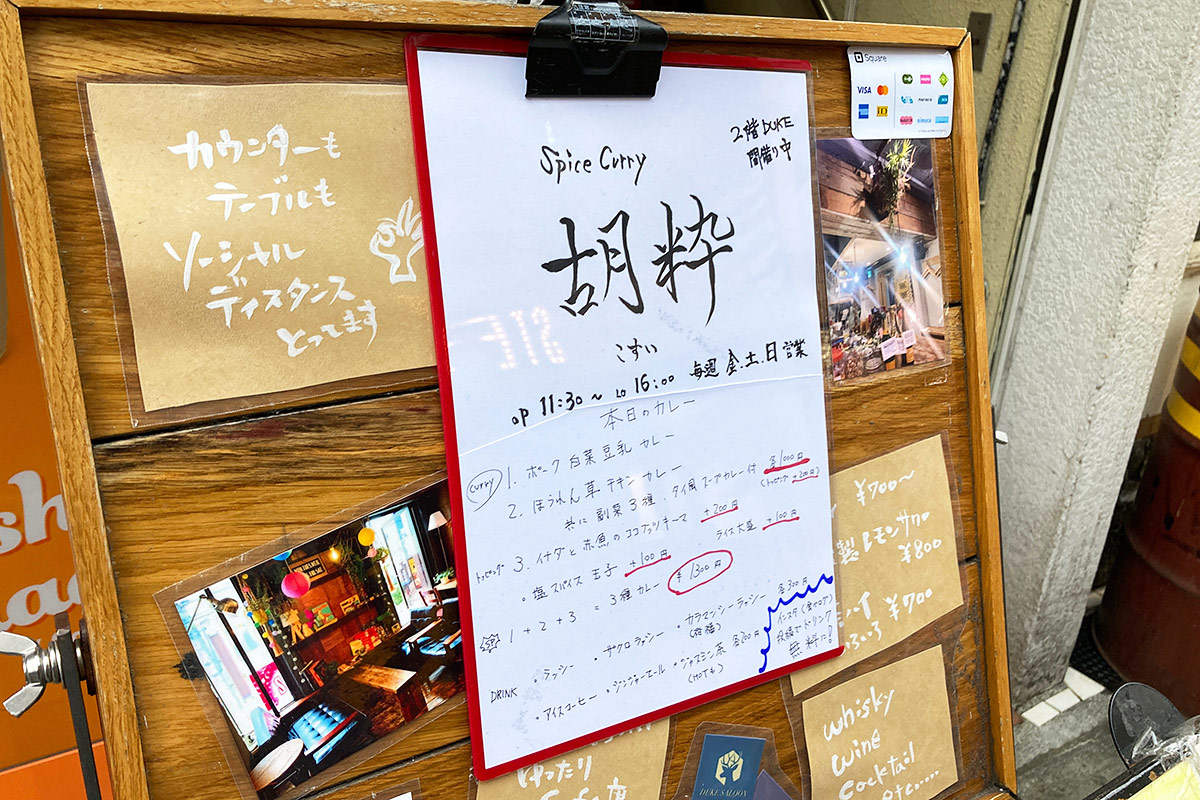 カウンターも
テーブルも
ソーシャル
ディスタンス
とってます
2階DUKE
間借り中
Spice Curry
胡粋
こすい
op 11:30〜 Lo 16:00 毎週 金.土.日 営業
本日のカレー
curry
1. ポーク白菜豆乳カレー
2. ほうれん草チキンカレー 各1000円
共に副菜3種・タイ風スープカレー付 (トッピング+200円)
トッピング 3. イナダと赤魚のココナッツキーマ +200円
・塩スパイス玉子 +100円
ライス大盛 +100円
1+2+3 = 3種カレー ¥1300円
DRINK
・ラッシー ・ザクロラッシー ・カラマンシーラッシー 各300円
・アイスコーヒー ・ジンジャーエール ・ジャスミン茶 各200円
(HOTも)
インスタ(食べログ)
投稿でドリンク
無料に!
Square
VISA
iD
nanaco
¥700〜
製レモンサワー
¥800
¥700
whisky
wine
cocktail
etc.....
ゆったり
DUKE SALOON